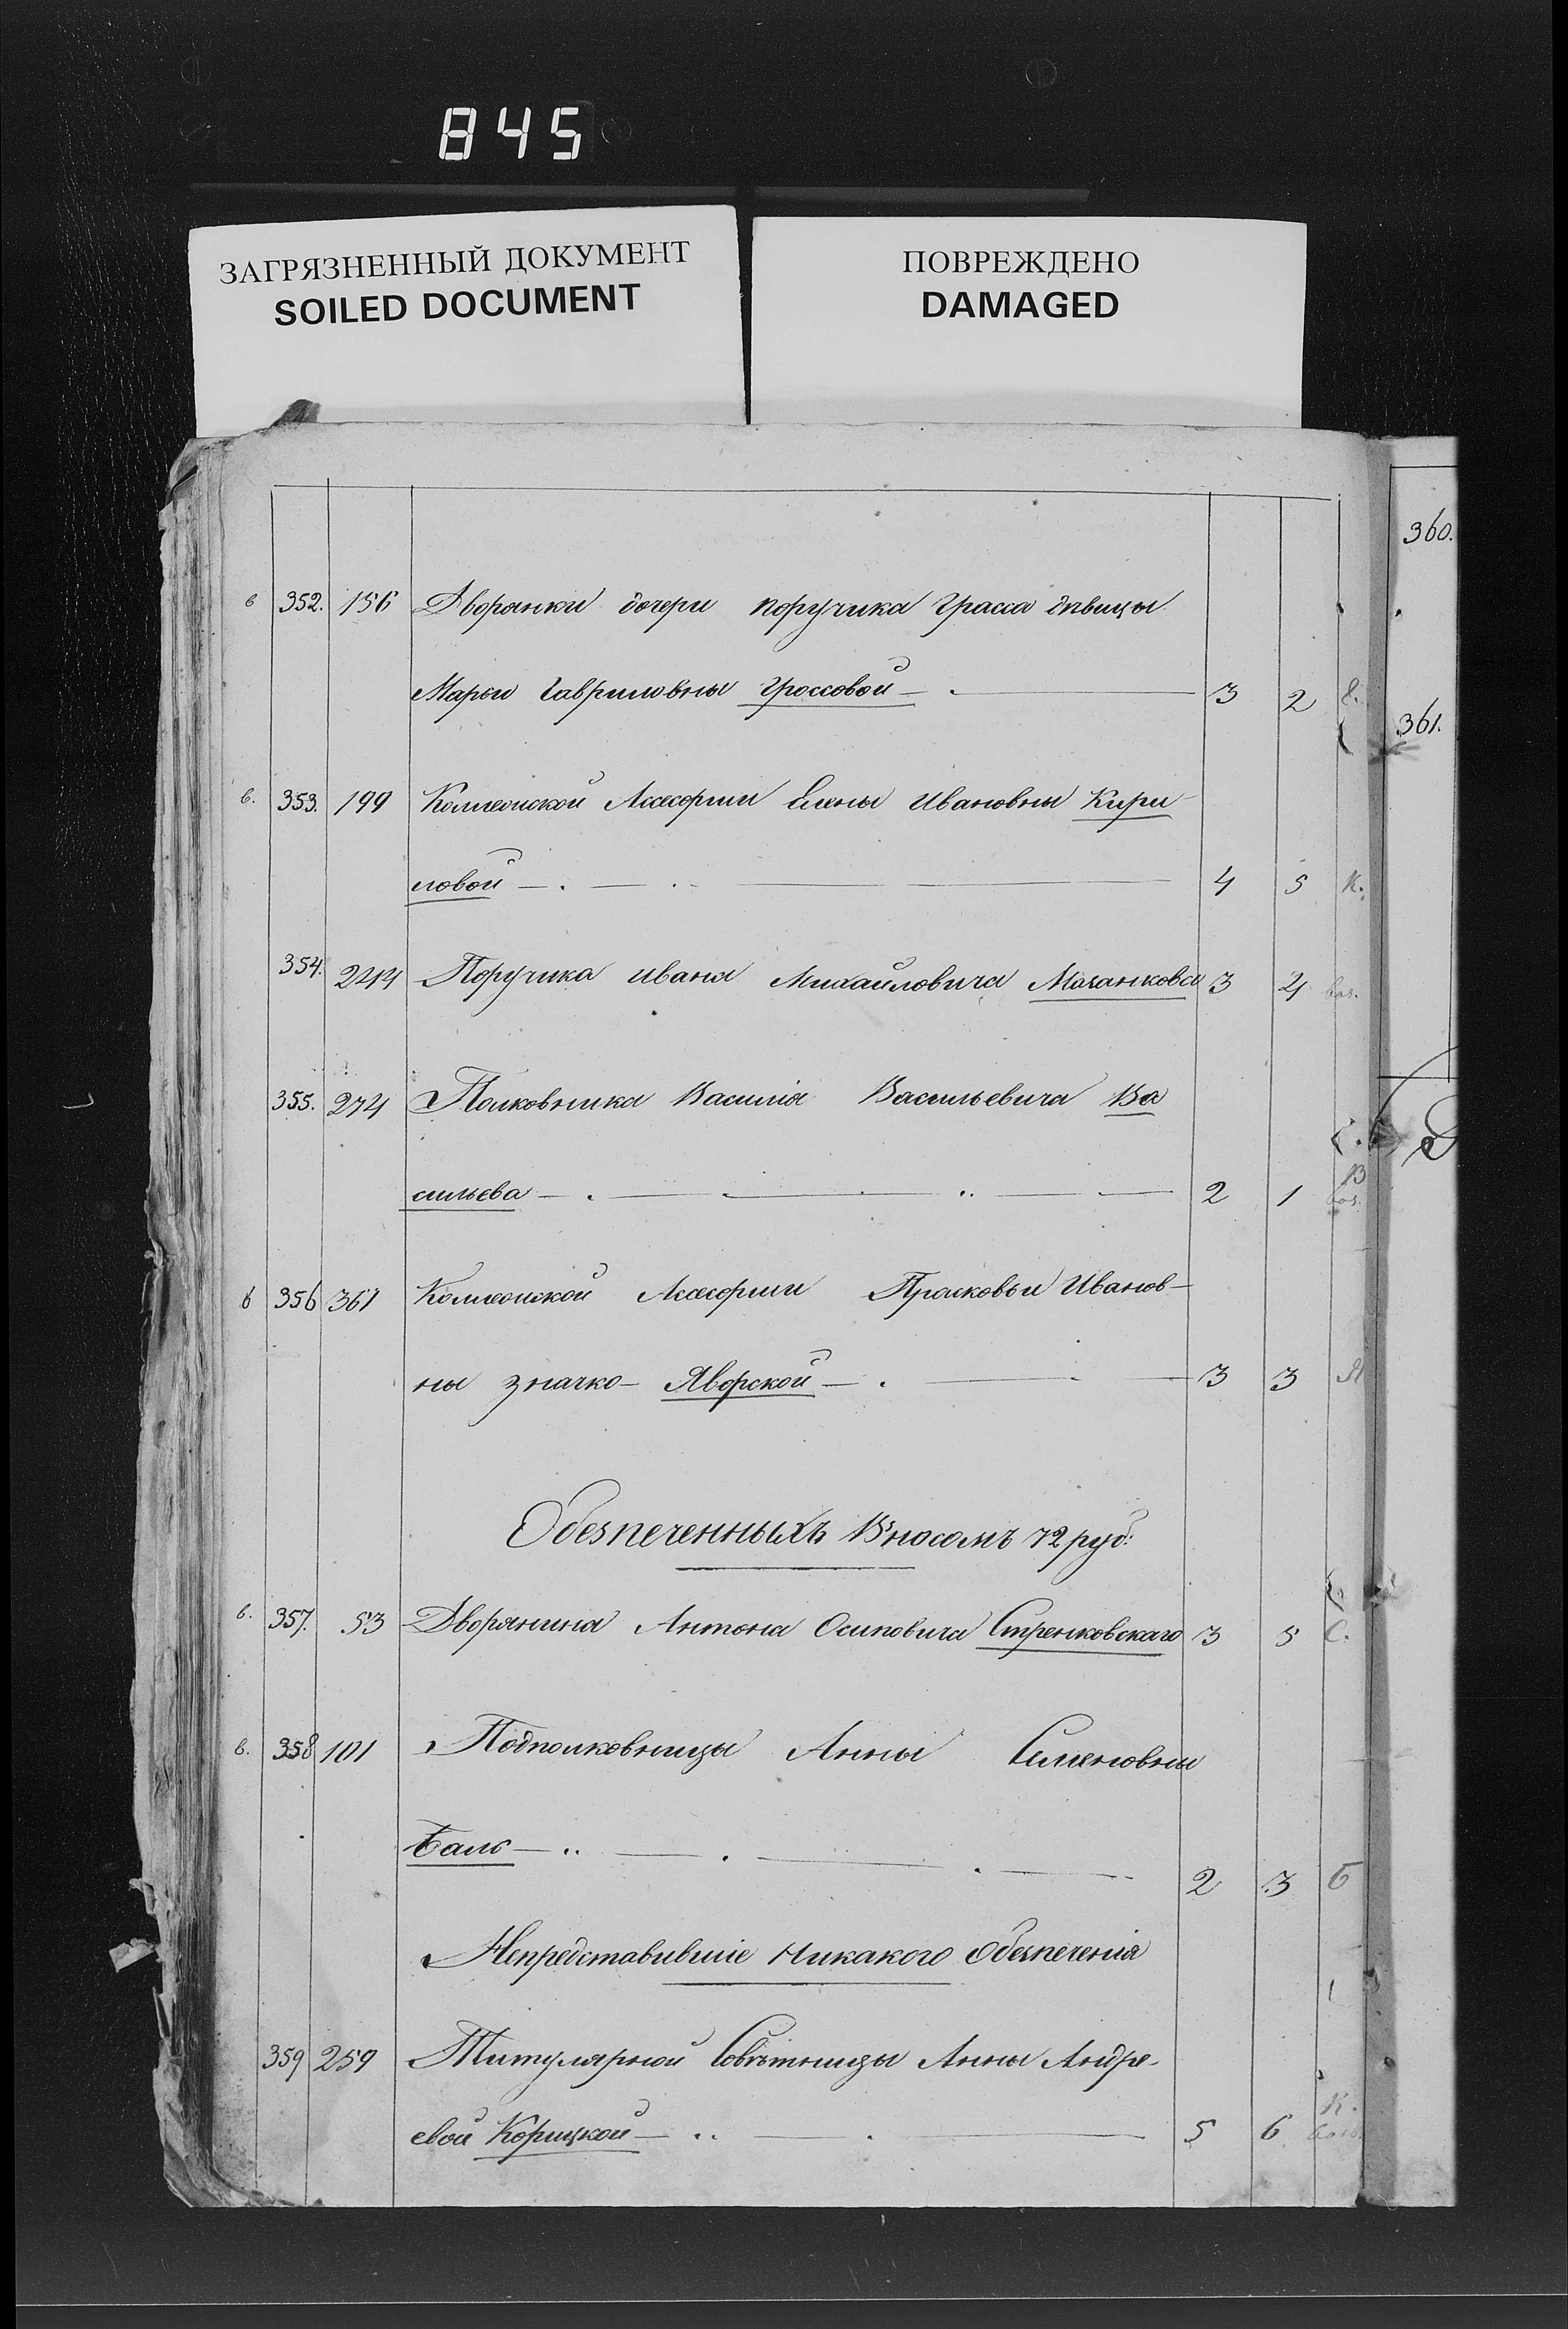 845
ЗАГРЯЗНЕННЫЙ ДОКУМЕНТ
SOILED DOCUMENT
ПОВРЕЖДЕНО
DAMAGED
в 352. 156 Дворянки дочери поручика Гросса дѣвицы
Марьи Гавриловны Гроссовой — 3 2
в. 353. 199 Коллежской Ассесорши Елены Ивановны Кири-
ловой — 4 5 К.
354. 244 Поручика Ивана Михайловича 3 4
355. 274 Полковника Василія Васильевича Ва
сильева — 2 1 В
в 356 361 Коллежской Ассесорши Прасковьи Иванов-
ны Значко- Яворской — 3 3 Я
Обезпеченныхъ Взносомъ 72 руб:
в. 357. 53 Дворянина Антона Осиповича Стренковскаго 3 5 С.
в. 358 101 Подполковницы Анны Семеновны
Балк — 2 3 Б
Непредставившіе Никакого Обезпеченія
359 259 Титулярной Совѣтницы Анны Андре-
евой Корицкой — 5 6 К.
360.
361.